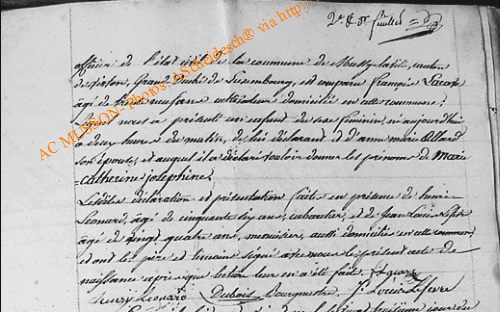 2e & dr feuillet
officier de l'état civil de la commune de Mussy-la-ville, canton
de virton, Grand Duché de Luxembourg, est comparu françois Lacave
agé de trente neuf ans cultivateur domicilié en cette commune;
Lequel nous a présenté un enfant du sexe féminin, né aujourd'hui
a deux heures du matin, de lui déclarant et d'anne marie Allard
son épouse, et auquel il a déclaré vouloir donner les prénoms de Marie
Catherine josephine.
Lesdites déclaration et présentation faites en présence de henri
Leonard, agé de cinquante ans, cabaretier, et de Jean Louis Lefevre
agé de vingt quatre ans, menuisier, aussi domiciliés en cette commune
et ont les père et témoins signé avec nous le présent acte de
naissance après que lecture leur en a été faite.
henry Leonard Dubois Bourgmestre J: Louis Lefevre
AC MUSSON- photos: AScheidesch® via http: